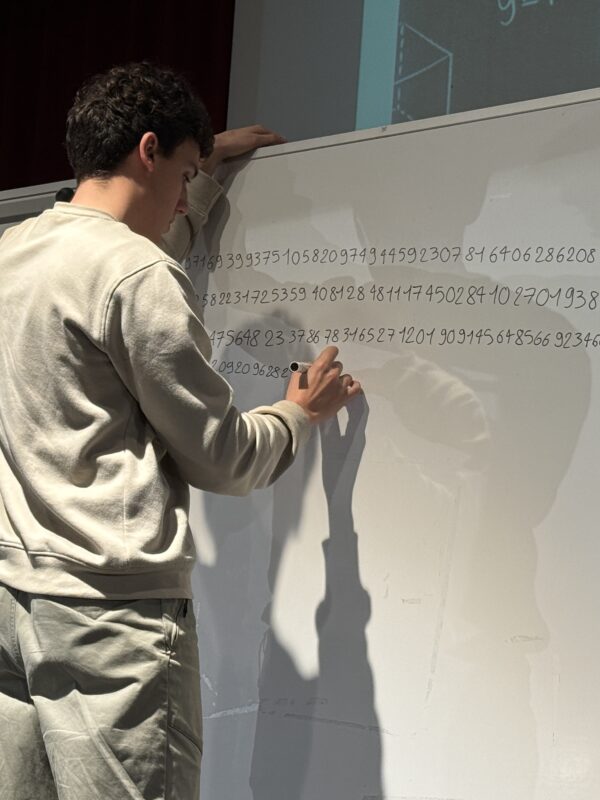 y=
97169 39 9375 10 5820974944592307 81 6406286208
5822317253594081284811174502841027019 38
475648 23 3786783165271201 909145648566 92346
2092096282